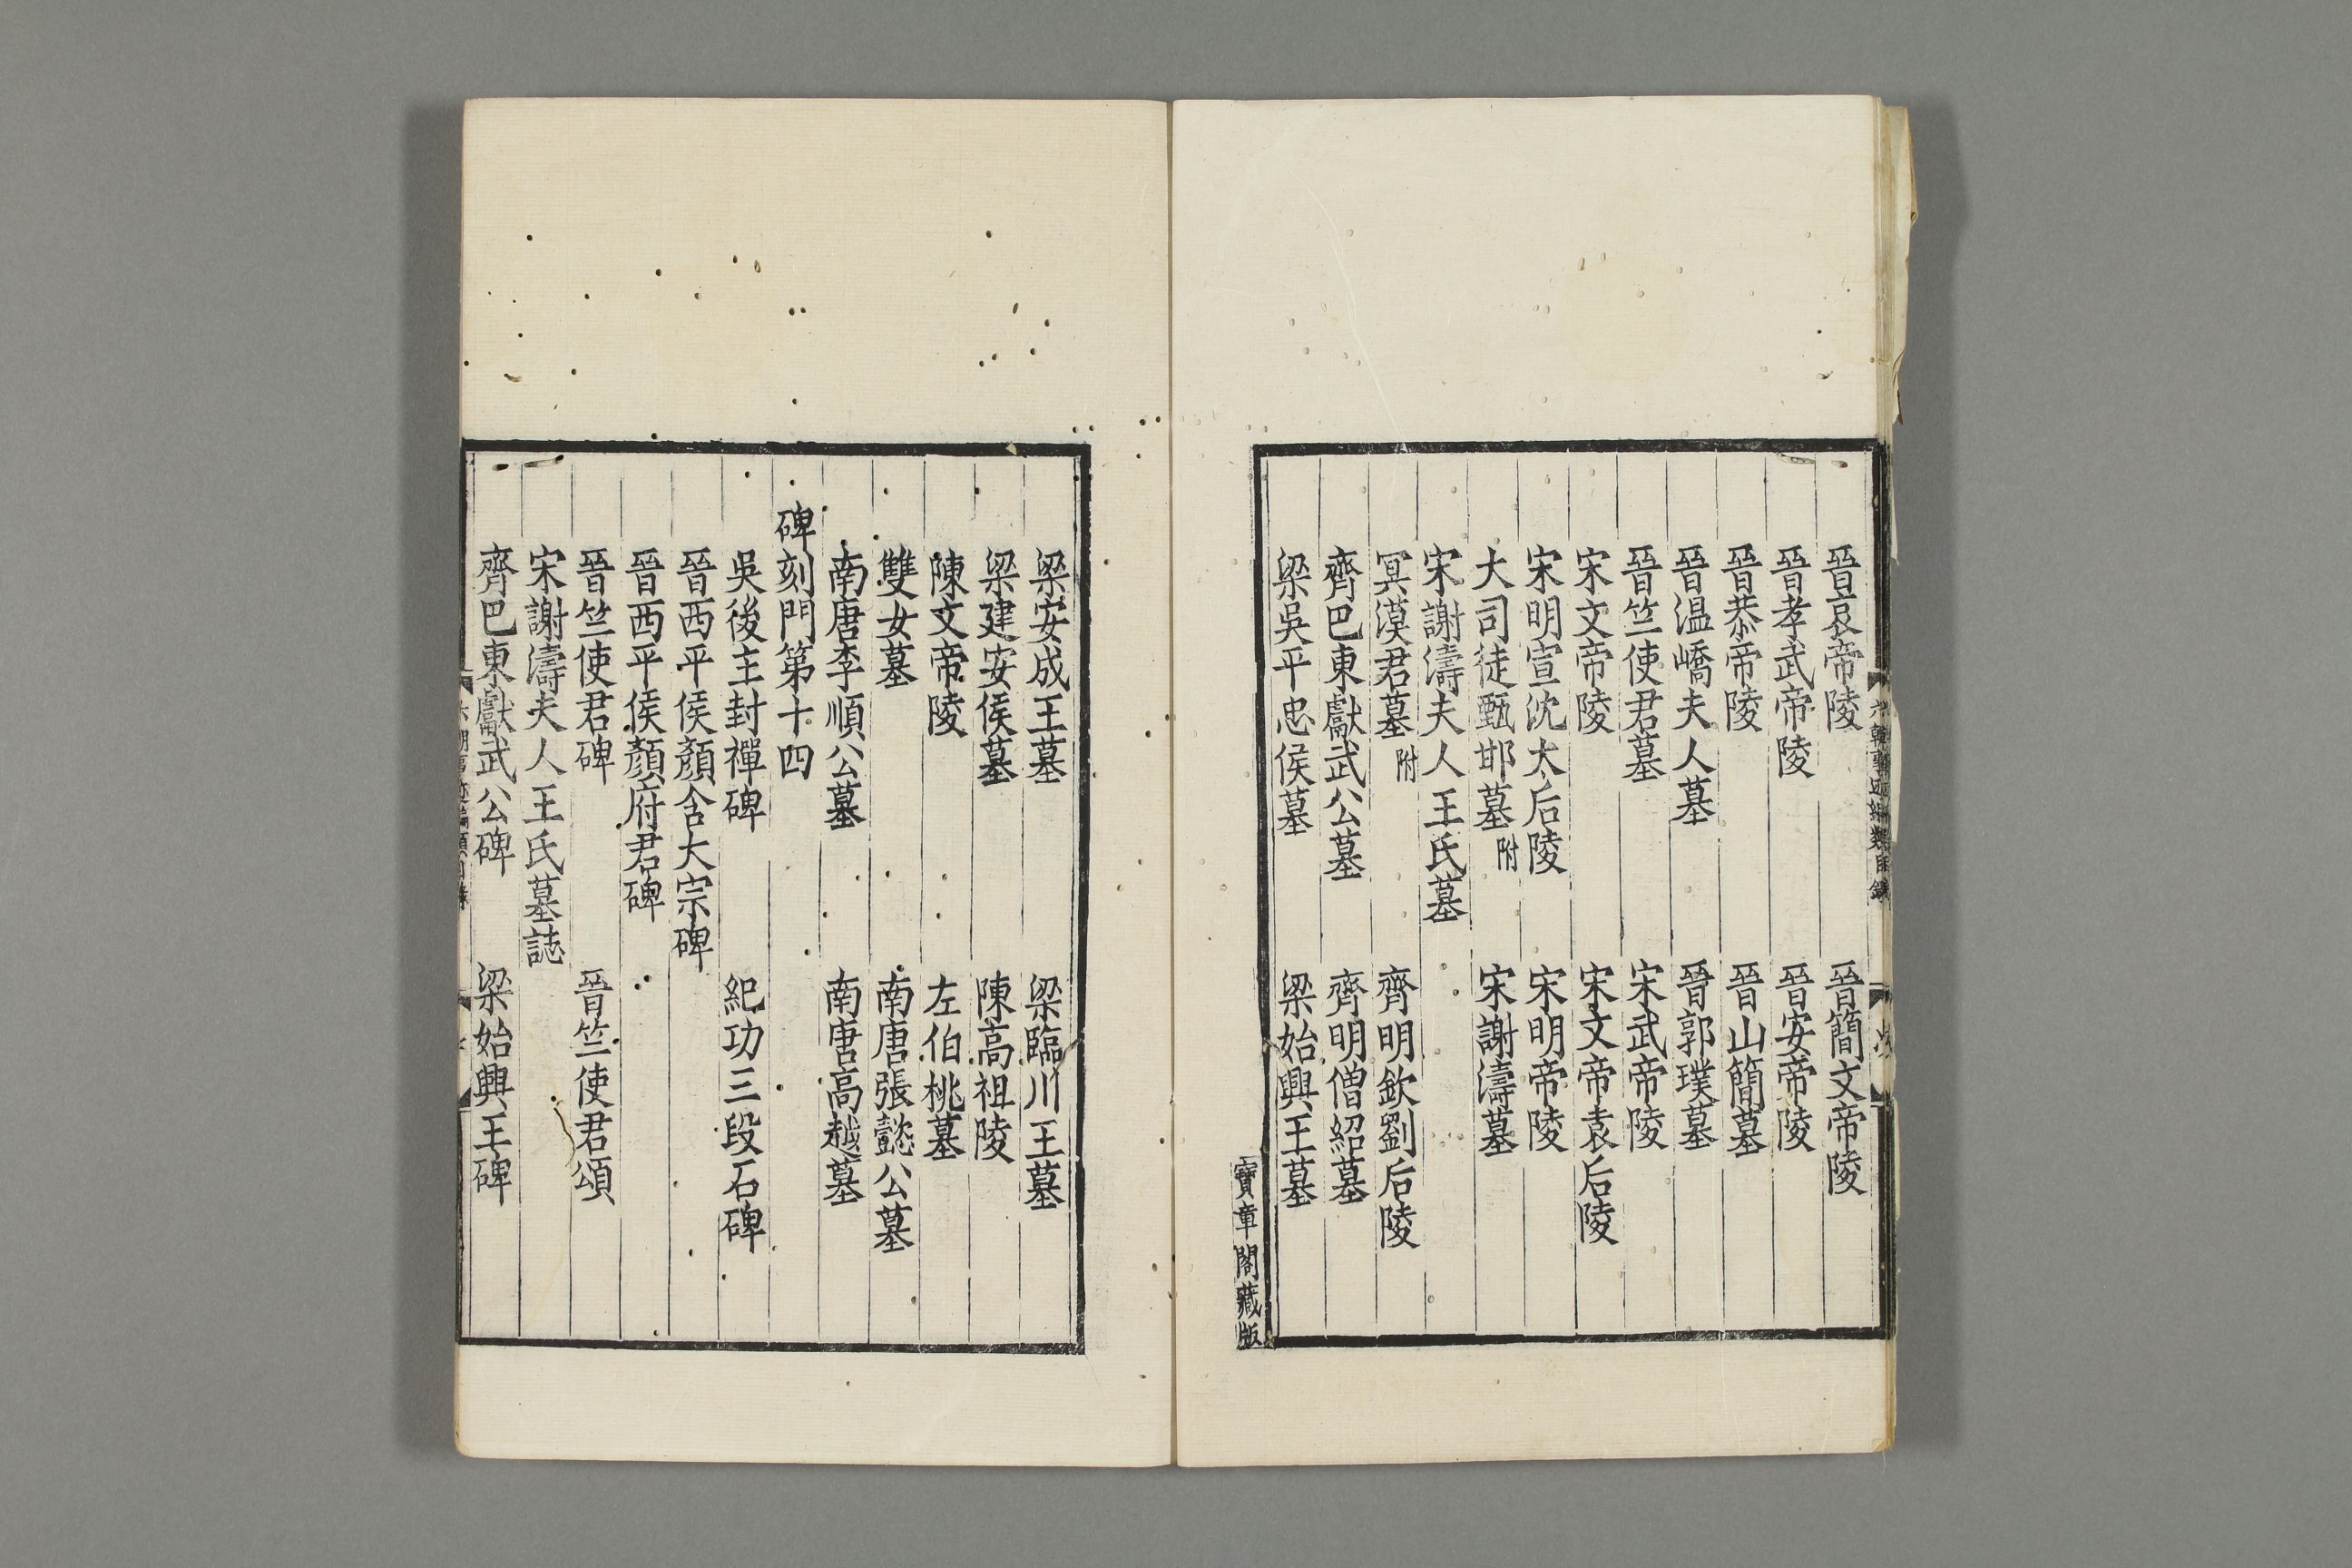 晉哀帝陵　晉簡文帝陵
晉孝武帝陵　晉安帝陵
晉恭帝陵　晉山簡墓
晉温嶠夫人墓　晉郭璞墓
晉竺使君墓　宋武帝陵
宋文帝陵　宋文帝袁后陵
宋明宣沈太后陵　宋明帝陵
大司徒甄邯墓附　宋謝濤墓
宋謝濤夫人王氏墓
冥漠君墓附　齊明欽劉后陵
齊巴東獻武公墓　齊明僧紹墓
梁吳平忠侯墓　梁始興王墓
寶章閣藏版
梁安成王墓　梁臨川王墓
梁建安侯墓　陳高祖陵
陳文帝陵　左伯桃墓
雙女墓　南唐張懿公墓
南唐李順公墓　南唐高越墓
碑刻門第十四
吳後主封禪碑　紀功三段石碑
晉西平侯顏含大宗碑
晉西平侯顏府君碑
晉竺使君碑　晉竺使君頌
宋謝濤夫人王氏墓誌
齊巴東獻武公碑　梁始興王碑